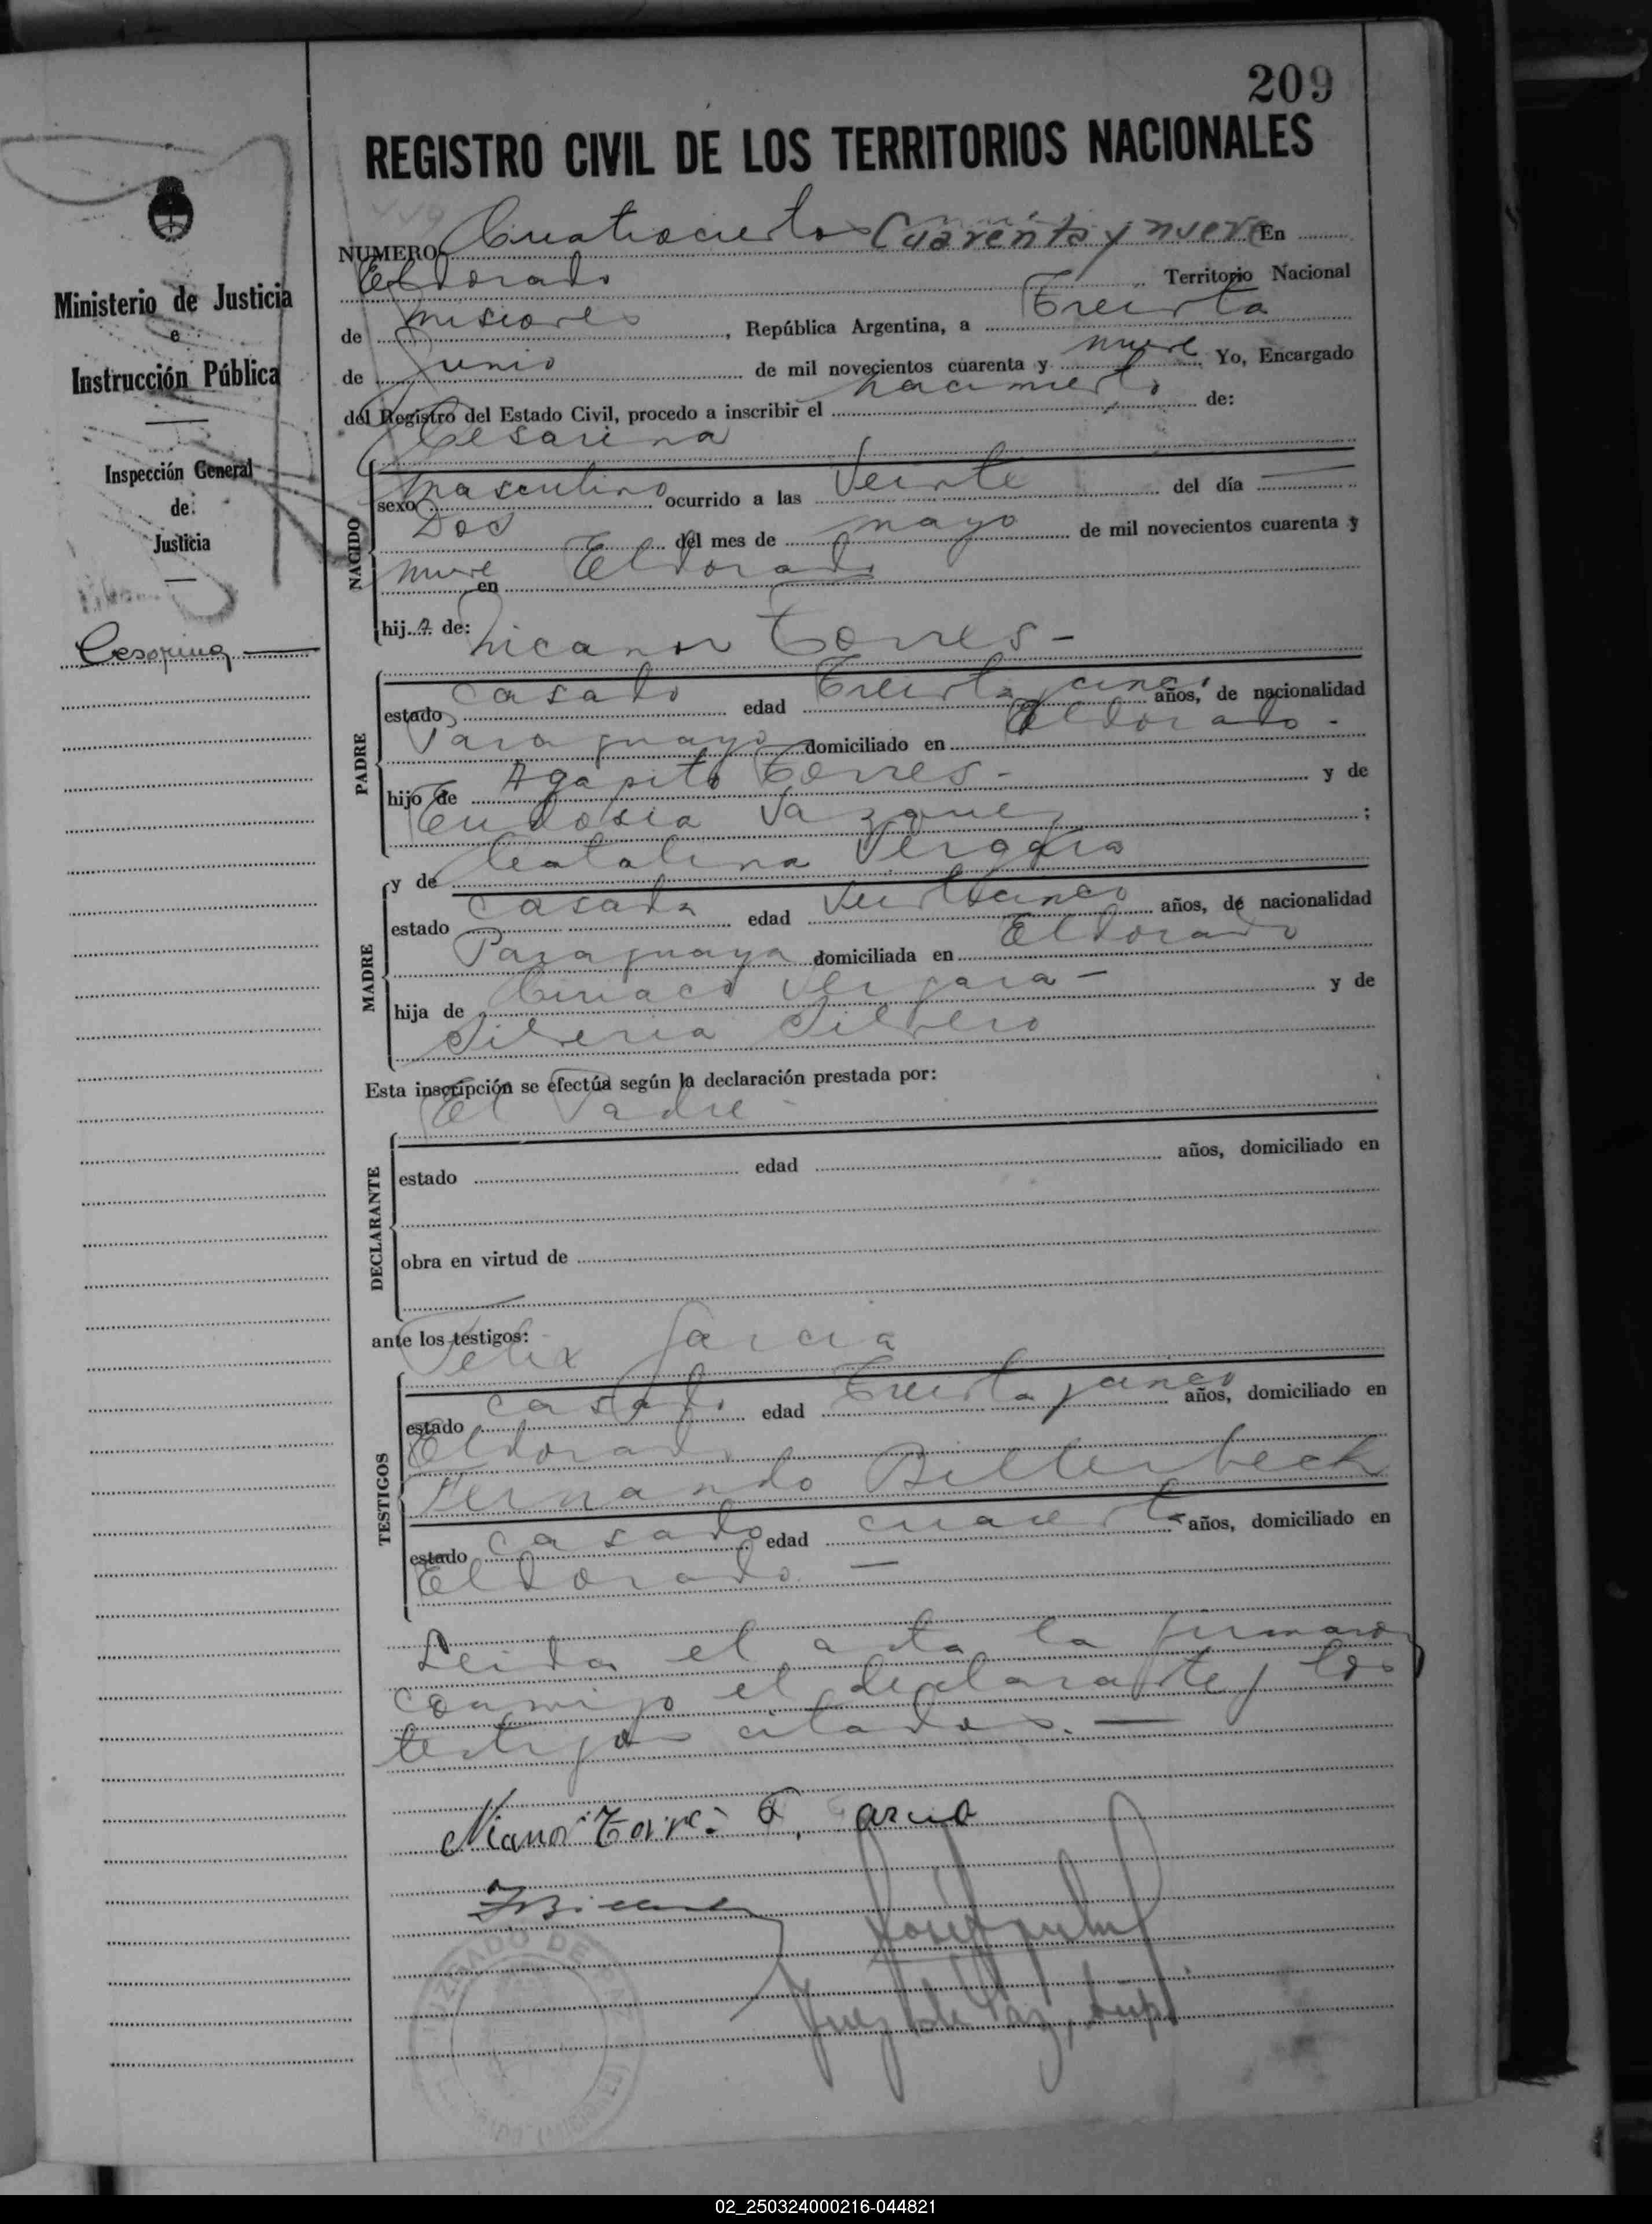 209
REGISTRO CIVIL DE LOS TERRITORIOS NACIONALES
Ministerio de Justicia
e
Instrucción Pública
Inspección General
de
Justicia
Cesarina
NUMERO Cuatrocientos Cuarenta y nueve En
Eldorado Territorio Nacional
de Misiones, República Argentina, a Treinta
de Junio de mil novecientos cuarenta y nueve Yo, Encargado
del Registro del Estado Civil, procedo a inscribir el nacimiento de:
Cesarina
NACIDO
sexo masculino ocurrido a las Veinte del día
Dos del mes de mayo de mil novecientos cuarenta y
nueve en Eldorado
hij a de: Nicanor Torres -
PADRE
estado casado edad Treinta y cinco años, de nacionalidad
Paraguayo domiciliado en Eldorado -
hijo de Agapito Torres - y de
Eudosia Vazquez ;
y de Catalina Vergara
MADRE
estado casada edad Veinticinco años, de nacionalidad
Paraguaya domiciliada en Eldorado
hija de Ciriaco Vergara - y de
Silveria Silvero
Esta inscripción se efectúa según la declaración prestada por:
El Padre -
DECLARANTE
estado edad años, domiciliado en
obra en virtud de
ante los testigos: Felix Garcia
TESTIGOS
estado casado edad Treinta y cinco años, domiciliado en
Eldorado
Fernando Billerbeck
estado casado edad cuarenta años, domiciliado en
Eldorado. -
Leida el acta la firmaron
conmigo el declarante y los
testigos citados. -
Nicanor Torres F. Garcia
Juez de Paz, Sup
JUZGADO DE PAZ
02_250324000216-044821